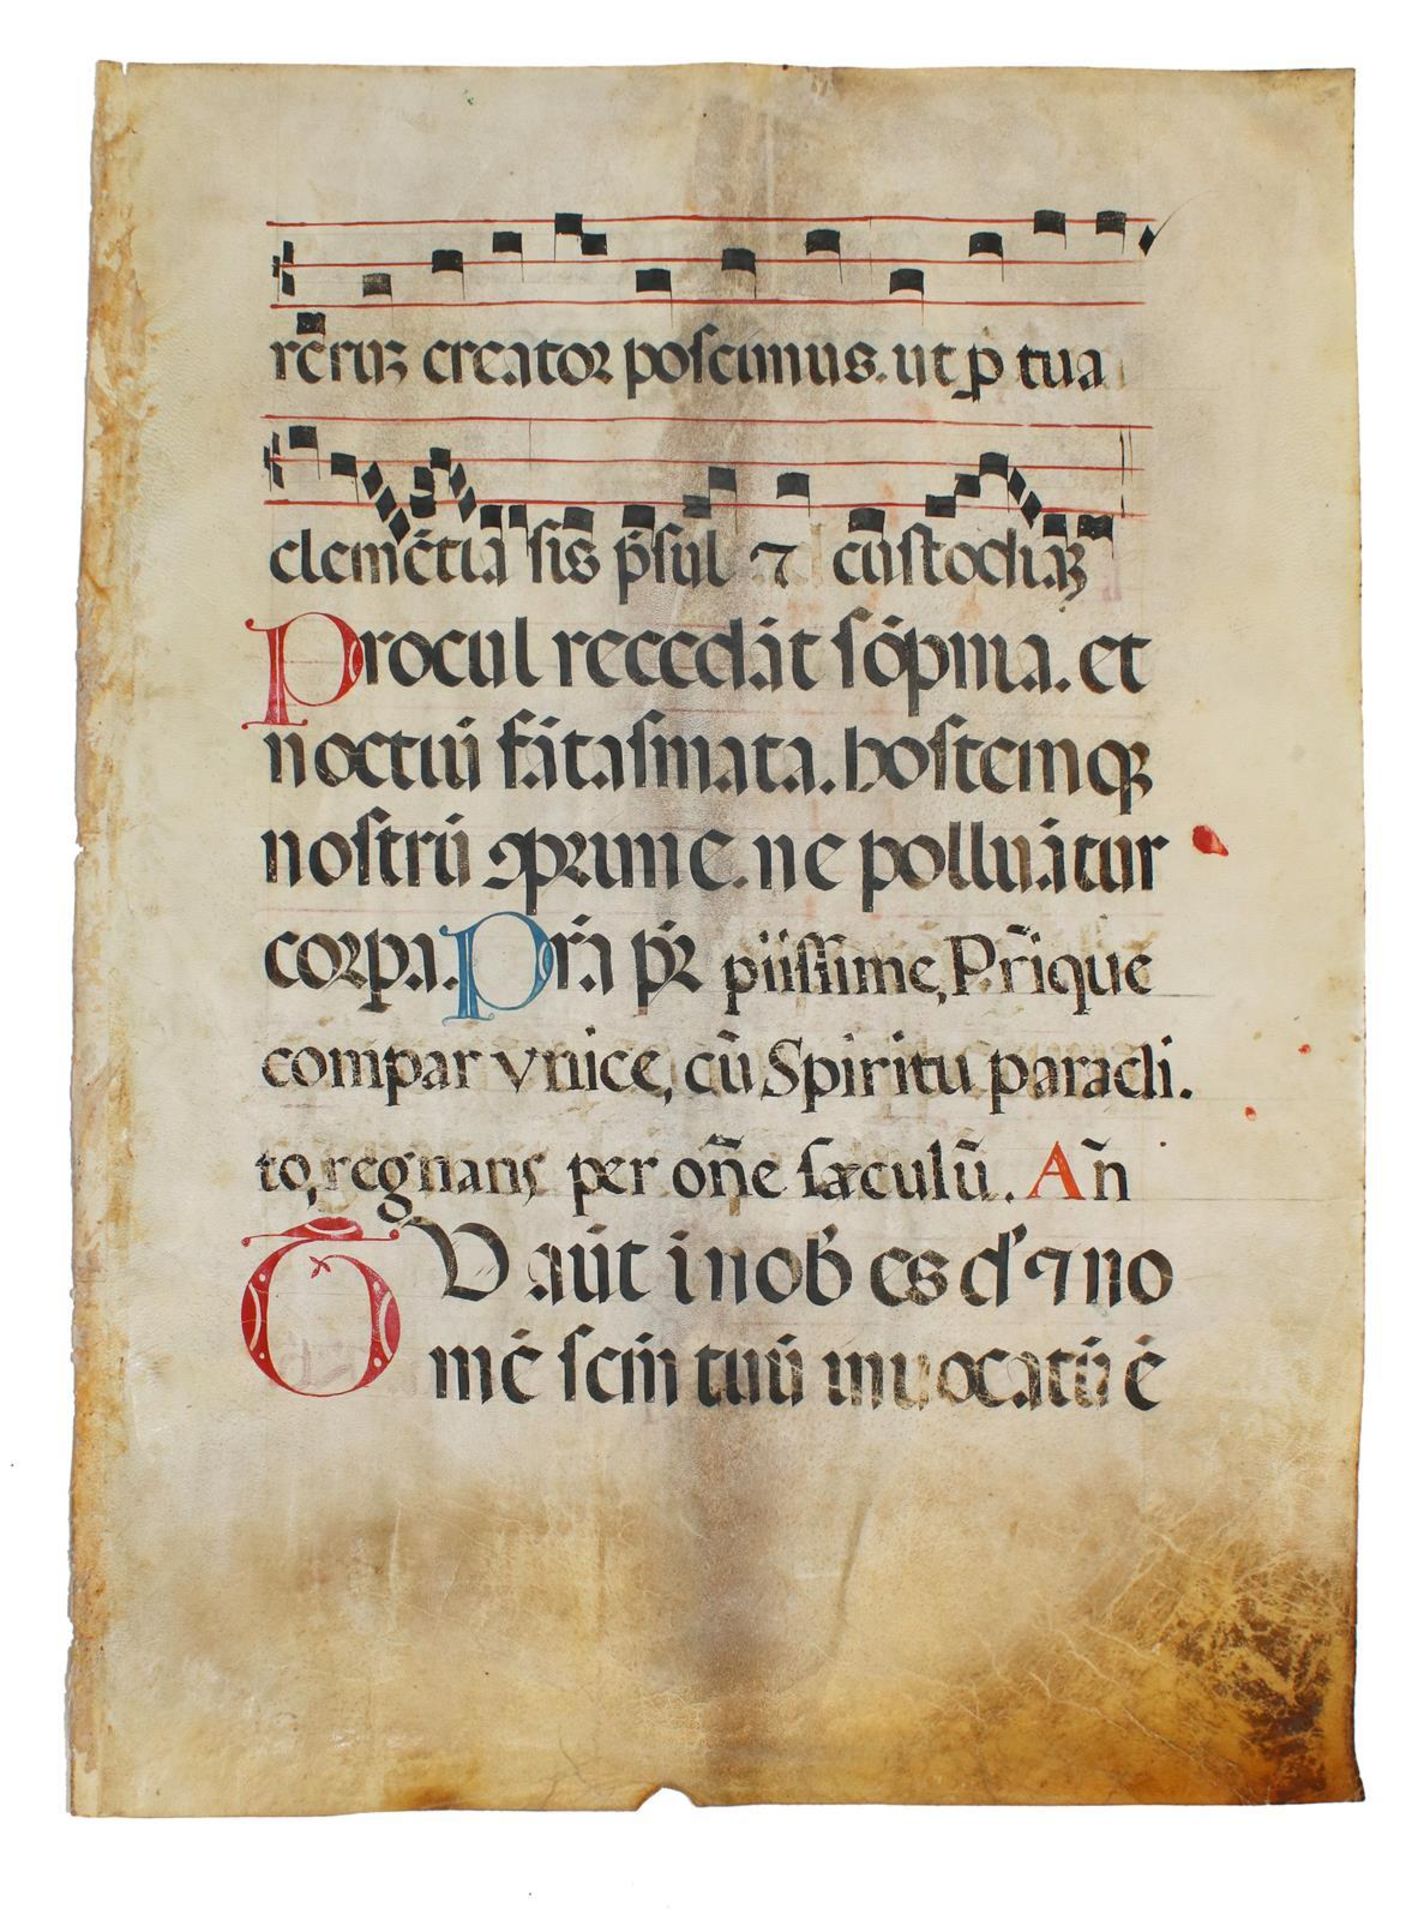 rērūꝫ creatoꝛ poſcimus. ut ꝑ tua
clemētia ſis p̄ſul ⁊ cuſtodiaꝫ
Procul recedāt ſōpnia. et
noctuū fātaſmata. hoſtemqꝫ
noſtrū ꝯpꝛime. ne polluātur
coꝛpa. Pr̄a pꝛ̄ piiſſime, Pr̄ique
compar vnice, cū Spiritu paracli.
to, regnans per oñe ſæculū. Añ
TU aūt i nob̄ es d' ⁊ no
mē ſcm̄ tuū inuocatū ē